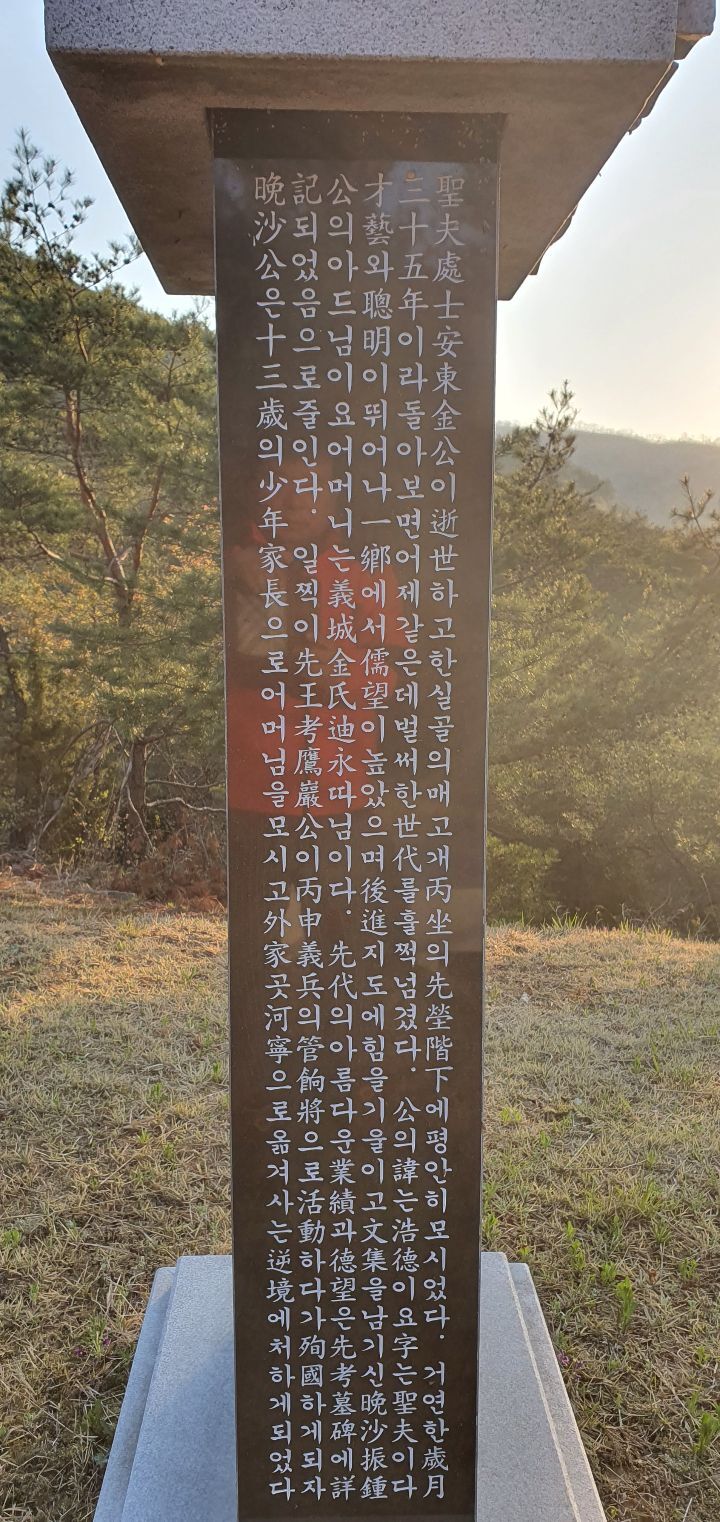 聖夫處士安東金公이逝世하고한실골의매고개丙坐의先塋階下에평안히모시었다. 거연한歲月
三十五年이라돌아보면어제같은데벌써한世代를훌쩍넘겼다. 公의諱는浩德이요字는聖夫이다
才藝와聰明이뛰어나一鄕에서儒望이높았으며後進지도에힘을기울이고文集을남기신晩沙振鍾
公의아드님이요어머니는義城金氏迪永따님이다. 先代의아름다운業績과德望은先考墓碑에詳
記되었음으로줄인다. 일찍이先王考鷹巖公이丙申義兵의管餉將으로活動하다가殉國하게되자
晩沙公은十三歲의少年家長으로어머님을모시고外家곳河寧으로옮겨사는逆境에처하게되었다